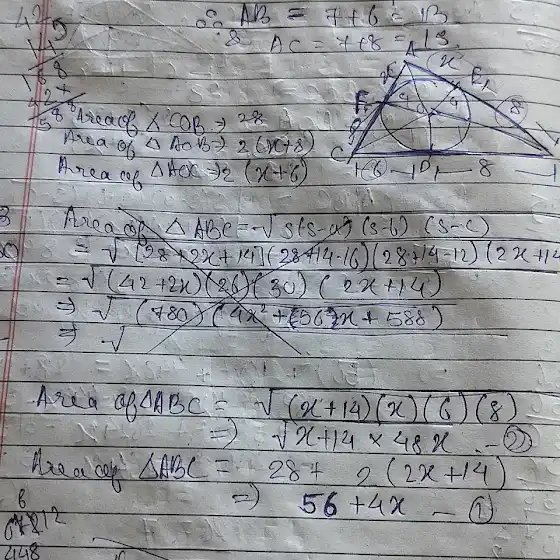 ∴ AB = 7+6 = 13
& AC = 7+8 = 15
A
x
x
E
8
F
6
C
6
D
8
Area of △ COB ⇒ 28
Area of △ AOB ⇒ 2(x+8)
Area of △ AOC ⇒ 2(x+6)
Area of △ ABC = √s(s-a)(s-b)(s-c)
= √(28+2x+14)(28+14-16)(28+14-12)(2x+14
= √(42+2x)(26)(30)(2x+14)
⇒ √(780)(4x²+(56)x+588)
⇒ √
Area of △ABC = √(x+14)(x)(6)(8)
⇒ √x+14 × 48x — ②
Area of △ABC = 28 + 2(2x+14)
⇒ 56+4x — ①
448